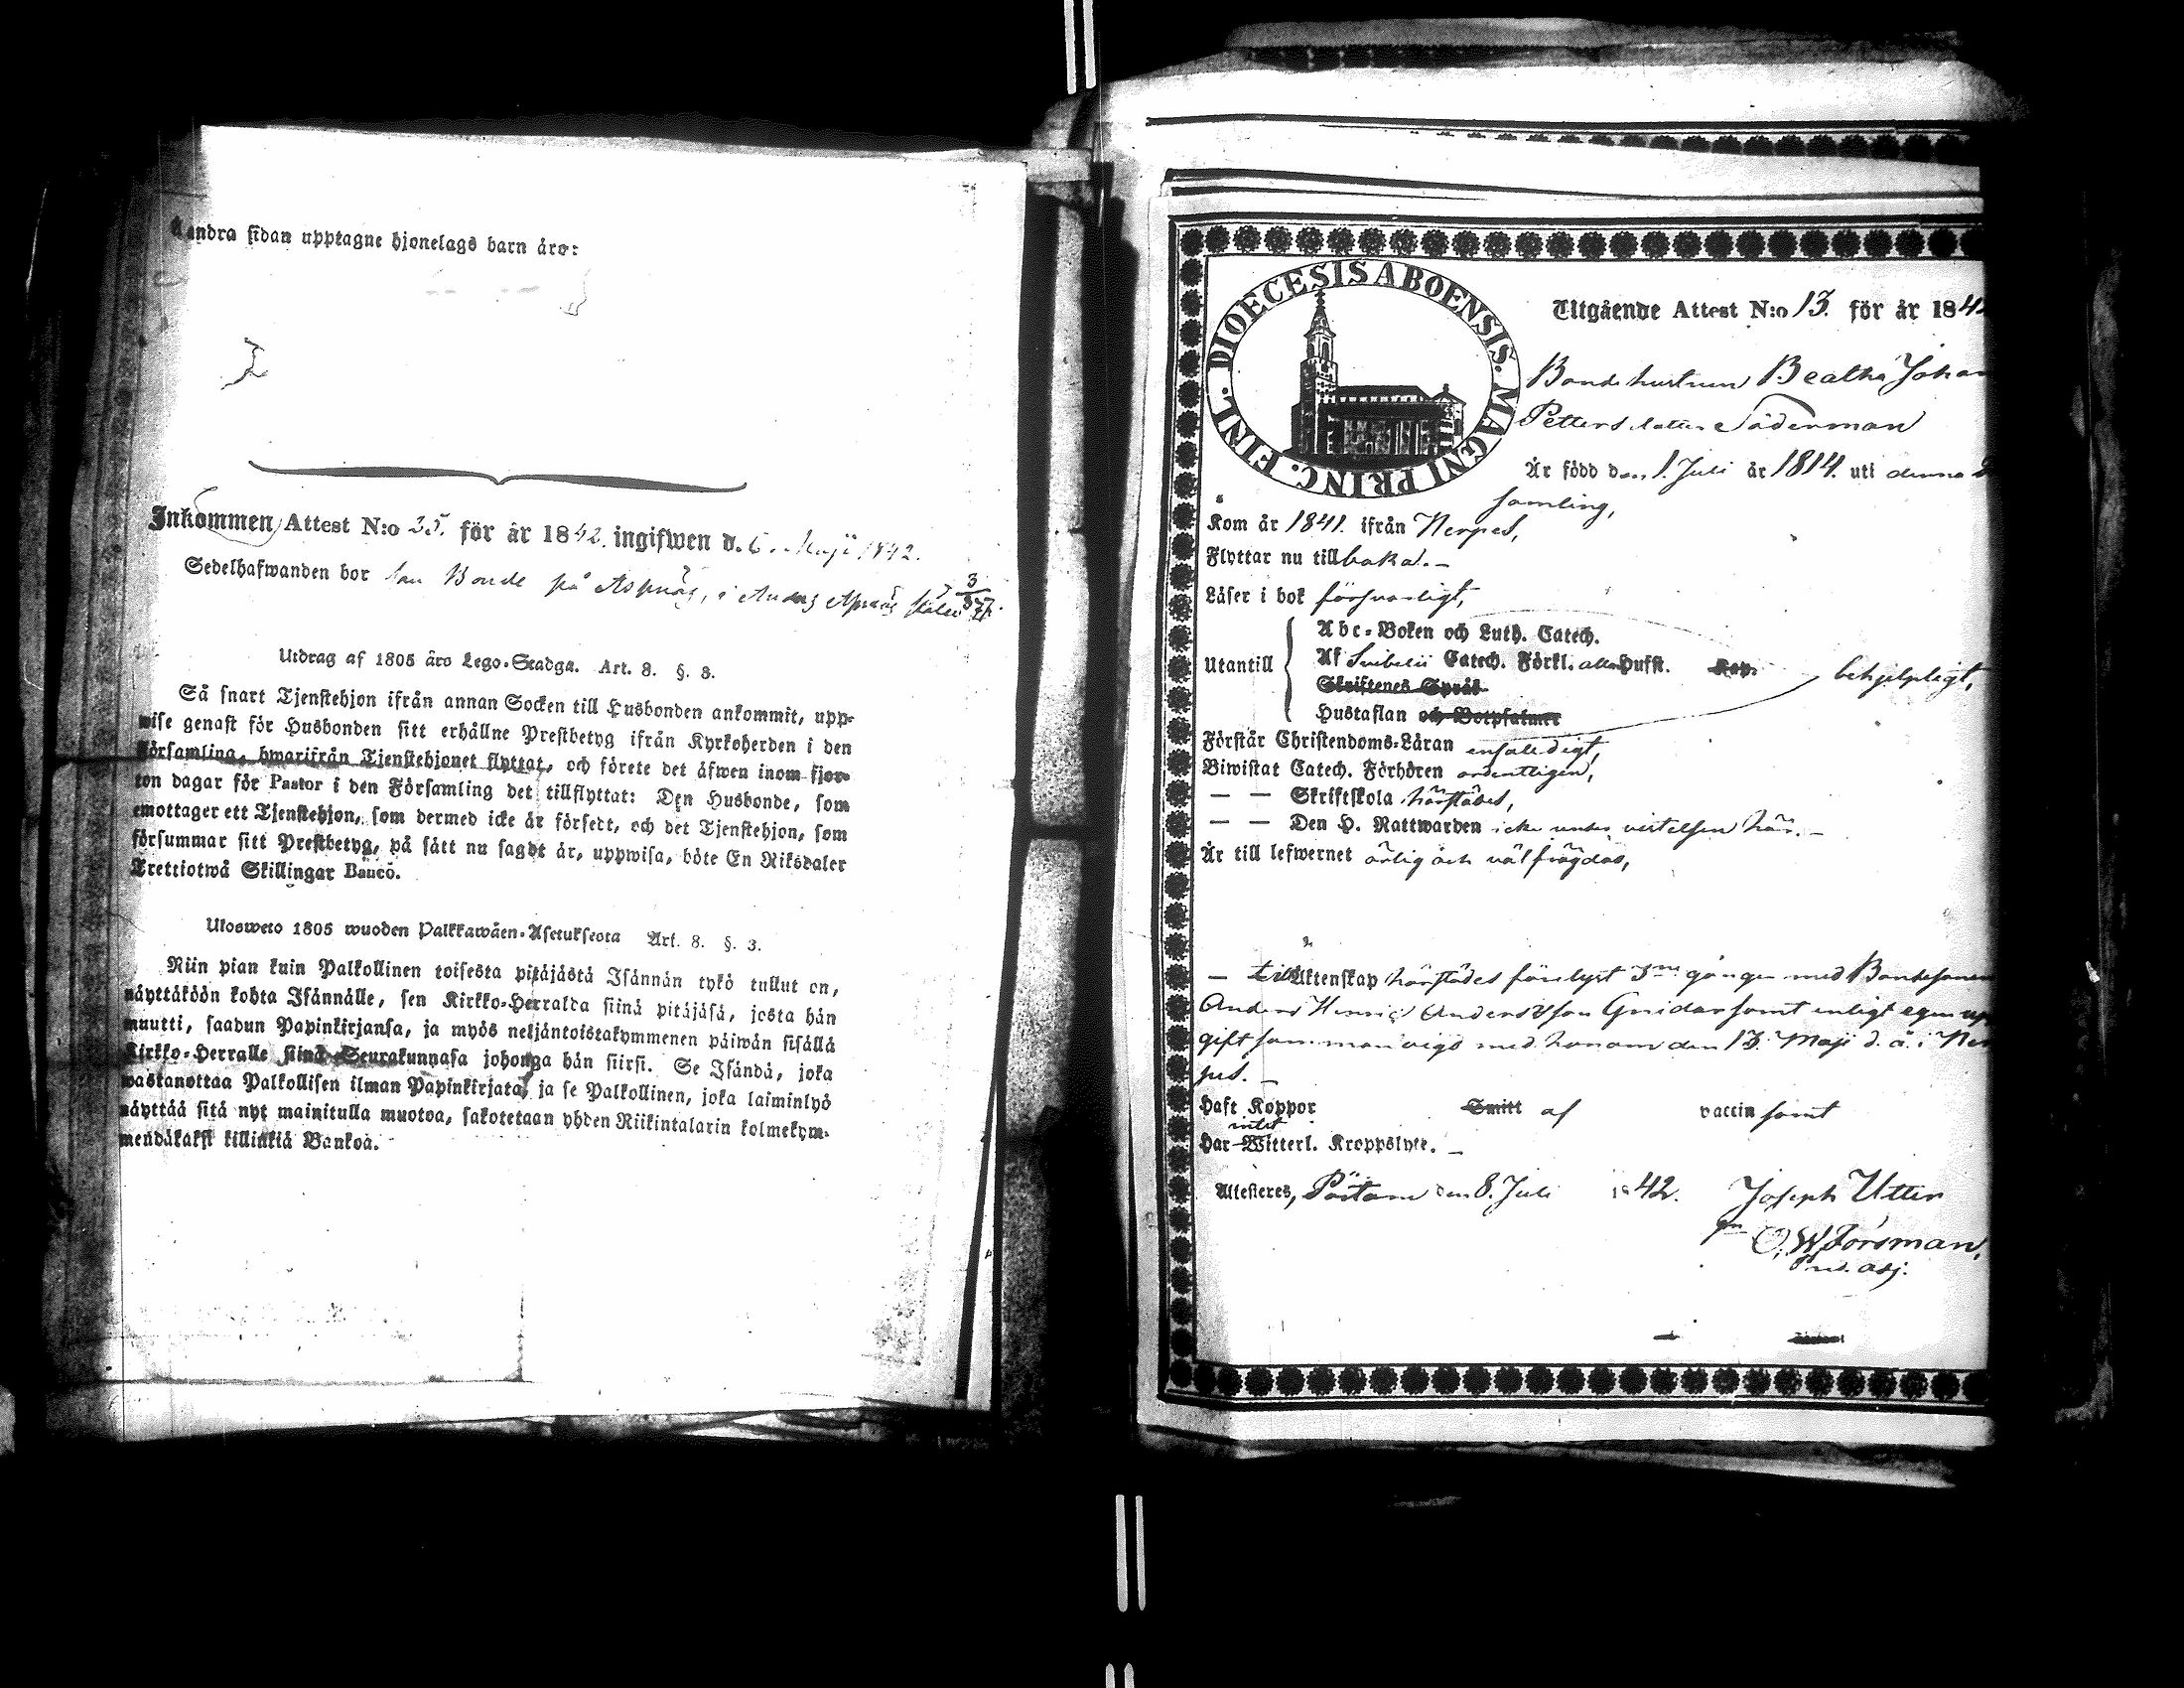 andra sidan upptagne hjonelags barn äro:
Inkommen Attest N:o 35. för år 1842. ingifwen d. 6. Maji 1842.
Sedelhafwanden bor som Bonde på Aspnäs, i Anders Aspnäs
Utdrag af 1805 års Lego-Stadga. Art. 8. §. 3.
Så snart Tjenstehjon ifrån annan Socken till Husbonden ankommit, upp-
wise genast för Husbonden sitt erhållne Prestbetyg ifrån Kyrkoherden i den
Församling, hwarifrån Tjenstehjonet flyttat, och förete det äfwen inom fjor-
ton dagar för Pastor i den Församling det tillflyttat: Den Husbonde, som
emottager ett Tjenstehjon, som dermed icke är försedt, och det Tjenstehjon, som
försummar sitt Prestbetyg, på sätt nu sagdt är, uppwisa, böte En Riksdaler
Trettiotwå Skillingar Banco.
Ulosweto 1805 wuoden Palkkawäen-Asetuksesta Art. 8. §. 3.
Niin pian kuin Palkollinen toisesta pitäjästä Isännän tykö tullut on,
näyttäköön kohta Isännälle, sen Kirkko-Herralda siinä pitäjäsä, josta hän
muutti, saadun Papinkirjansa, ja myös neljäntoistakymmenen päiwän sisällä
Kirkko-Herralle siinä Seurakunnasa johonga hän siirsi. Se Isändä, joka
wastanottaa Palkollisen ilman Papinkirjata, ja se Palkollinen, joka laiminlyö
näyttää sitä nyt mainitulla muotoa, sakotetaan yhden Riikintalarin kolmekym-
mendäkaksi killinkiä Bankoa.
DIOECESIS ABOENSIS. MAGNI PRINC. FINL.
Utgående Attest N:o 13. för år 184
Bondehustrun Beatha Johan
Petters dotter Söderman
Är född den 1. Juli år 1814. uti denna
samling,
Kom år 1841. ifrån Nerpes,
Flyttar nu tillbaka. -
Läser i bok försvarligt,
Abc-Boken och Luth. Catech.
Utantill Af Svebelii Catech. Förkl. alla Hufst. Kap. behjelpligt,
Skriftenes Språk
Hustaflan och Botpsalmer
Förstår Christendoms-Läran enfaldigt,
Biwistat Catech. Förhören ordentligen,
— — Skriftskola härstädes,
— — Den H. Nattwarden icke under vistelsen här. -
Är till lefwernet ärlig och välfrägdad,
- till Äktenskap härstädes förelyst 3ne gånger med Bondesonen
Anders Henric Andersson Gnidar samt enligt egen up
gift sammanvigd med honom den 13. Maji d. å. i Ner
pes. -
Haft Koppor Smitt af vaccin samt
intet
Har Witterl. Kroppslyte. -
Attesteres, Pörtom den 8. Juli 1842. Joseph Utter
gm
O. W. Forsman,
Pred. adj.